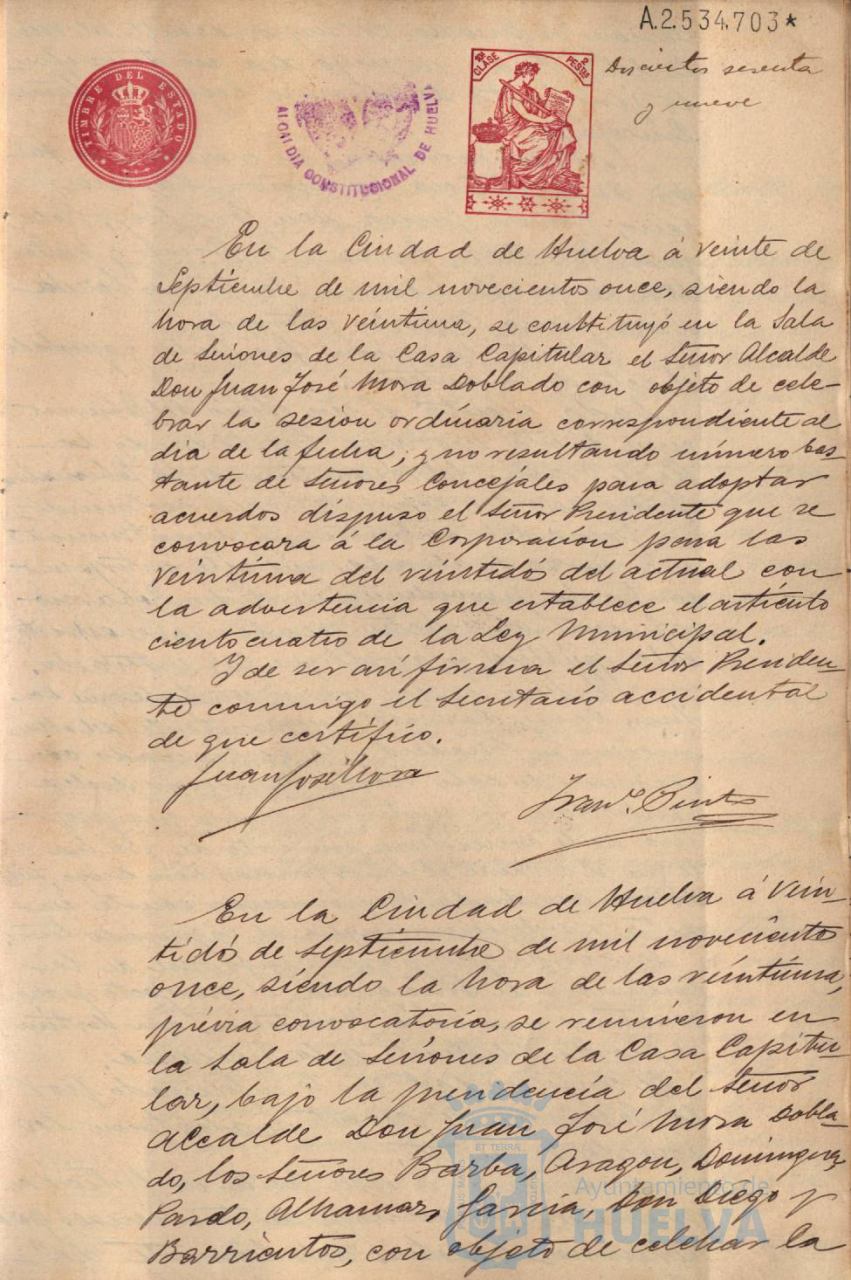 A.2.534.703*
TIMBRE DEL ESTADO
ALCALDIA CONSTITUCIONAL DE HUELVA
10ª CLASE 2 PESETAS
Doscientos sesenta
y nueve
En la Ciudad de Huelva á veinte de
Septiembre de mil novecientos once, siendo la
hora de las veintiuna, se constituyó en la Sala
de Sesiones de la Casa Capitular el Señor Alcalde
Don Juan José Mora Doblado con objeto de cele-
brar la sesion ordinaria correspondiente al
dia de la fecha; y no resultando número bas-
tante de Señores Concejales para adoptar
acuerdos dispuso el Señor Presidente que se
convocara á la Corporacion para las
veintiuna del veintidós del actual con
la advertencia que establece el artículo
ciento cuatro de la Ley Municipal.
Y de ser asi firma el Señor Presiden-
te conmigo el Secretario accidental
de que certifico.
Juan José Mora
Franco. Pinto
En la Ciudad de Huelva á vein-
tidós de Septiembre de mil novecientos
once, siendo la hora de las veintiuna,
prévia convocatoria, se reunieron en
la Sala de Sesiones de la Casa Capitu-
lar, bajo la presidencia del Señor
Alcalde Don Juan José Mora Dobla-
do, los Señores Barba, Aragon, Dominguez
Pardo, Alhamar, Garcia, Don Diego y
Barrientos, con objeto de celebrar la
Ayuntamiento de
HUELVA